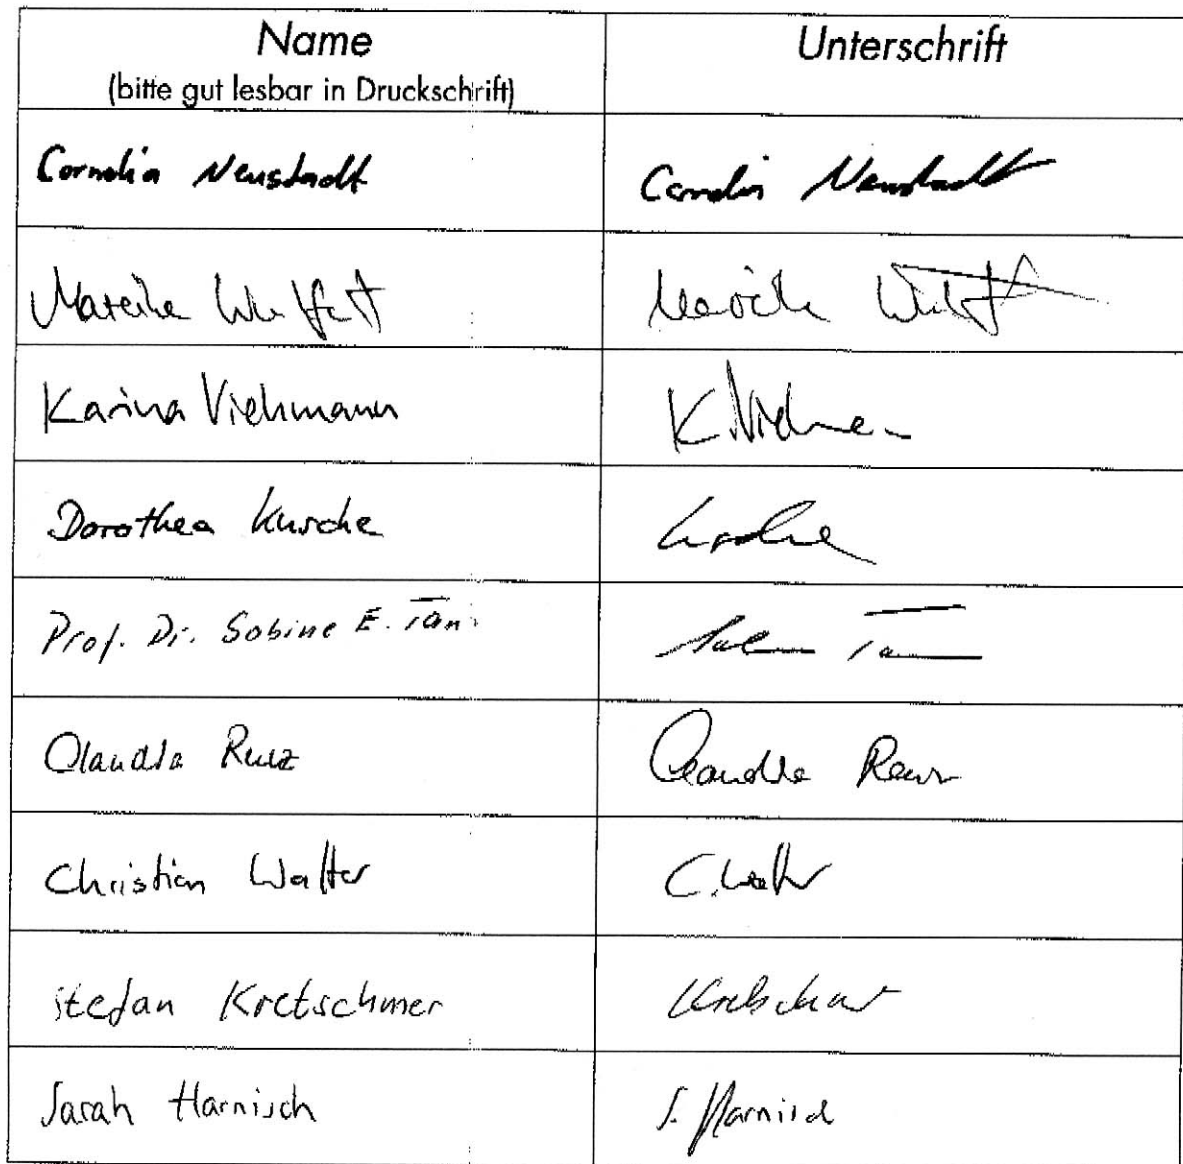 Name Unterschrift
(bitte gut lesbar in Druckschrift)
Cornelia Neustadt Cornelia Neustadt
Mareike Wulfert Mareike
Karina Viehmann K. Viehmann
Dorothea Kusche Kusche
Prof. Dr. Sabine E.
Claudia Ruiz Claudia
Christian Walter C. Walter
Stefan Kretschmer Kretschmer
Sarah Harnisch S. Harnisch